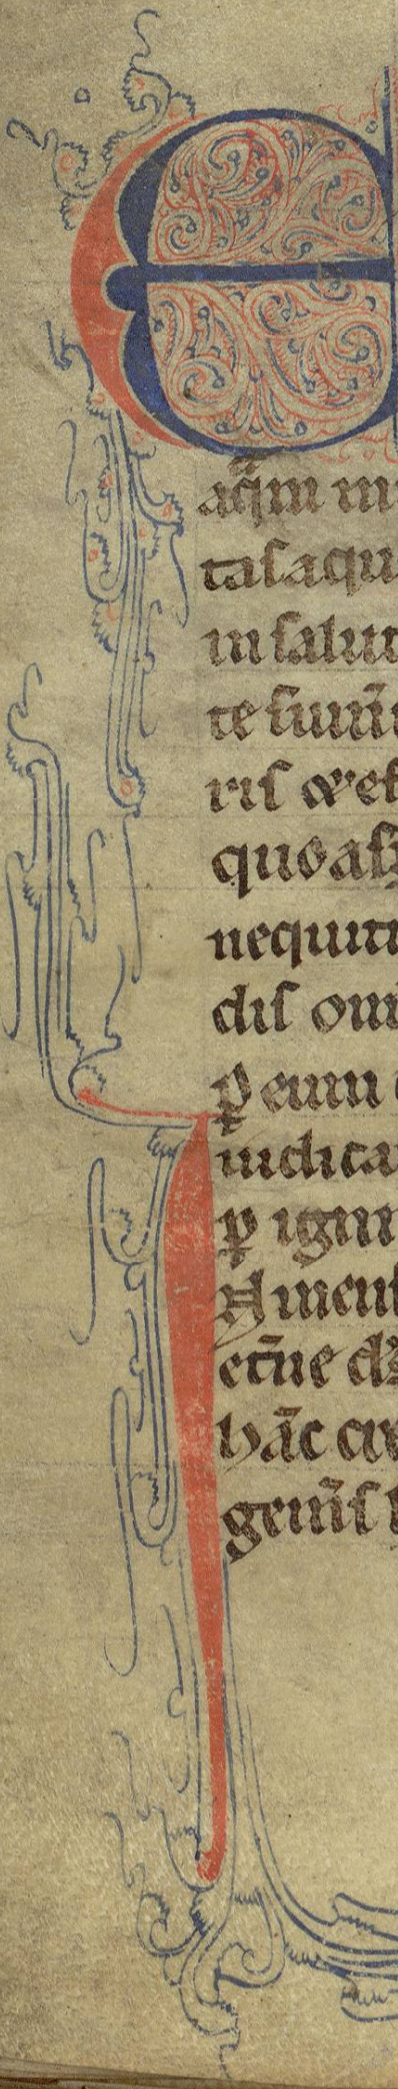 E
aq̄m in
tas aqu
in salut
te sum̄
ris & ef
quo asp
nequiti
dis om
p̱ eum
iudica
p̱ ign
Amen
et̄ne d̄s
hāc cre
gen̄is